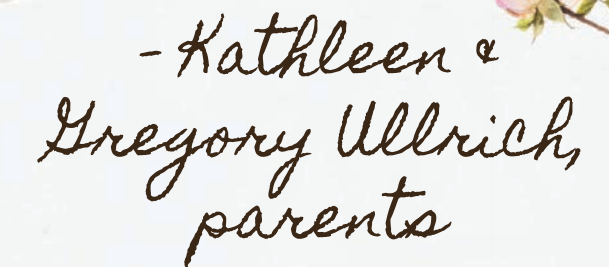 - Kathleen &
Gregory Ullrich,
parents